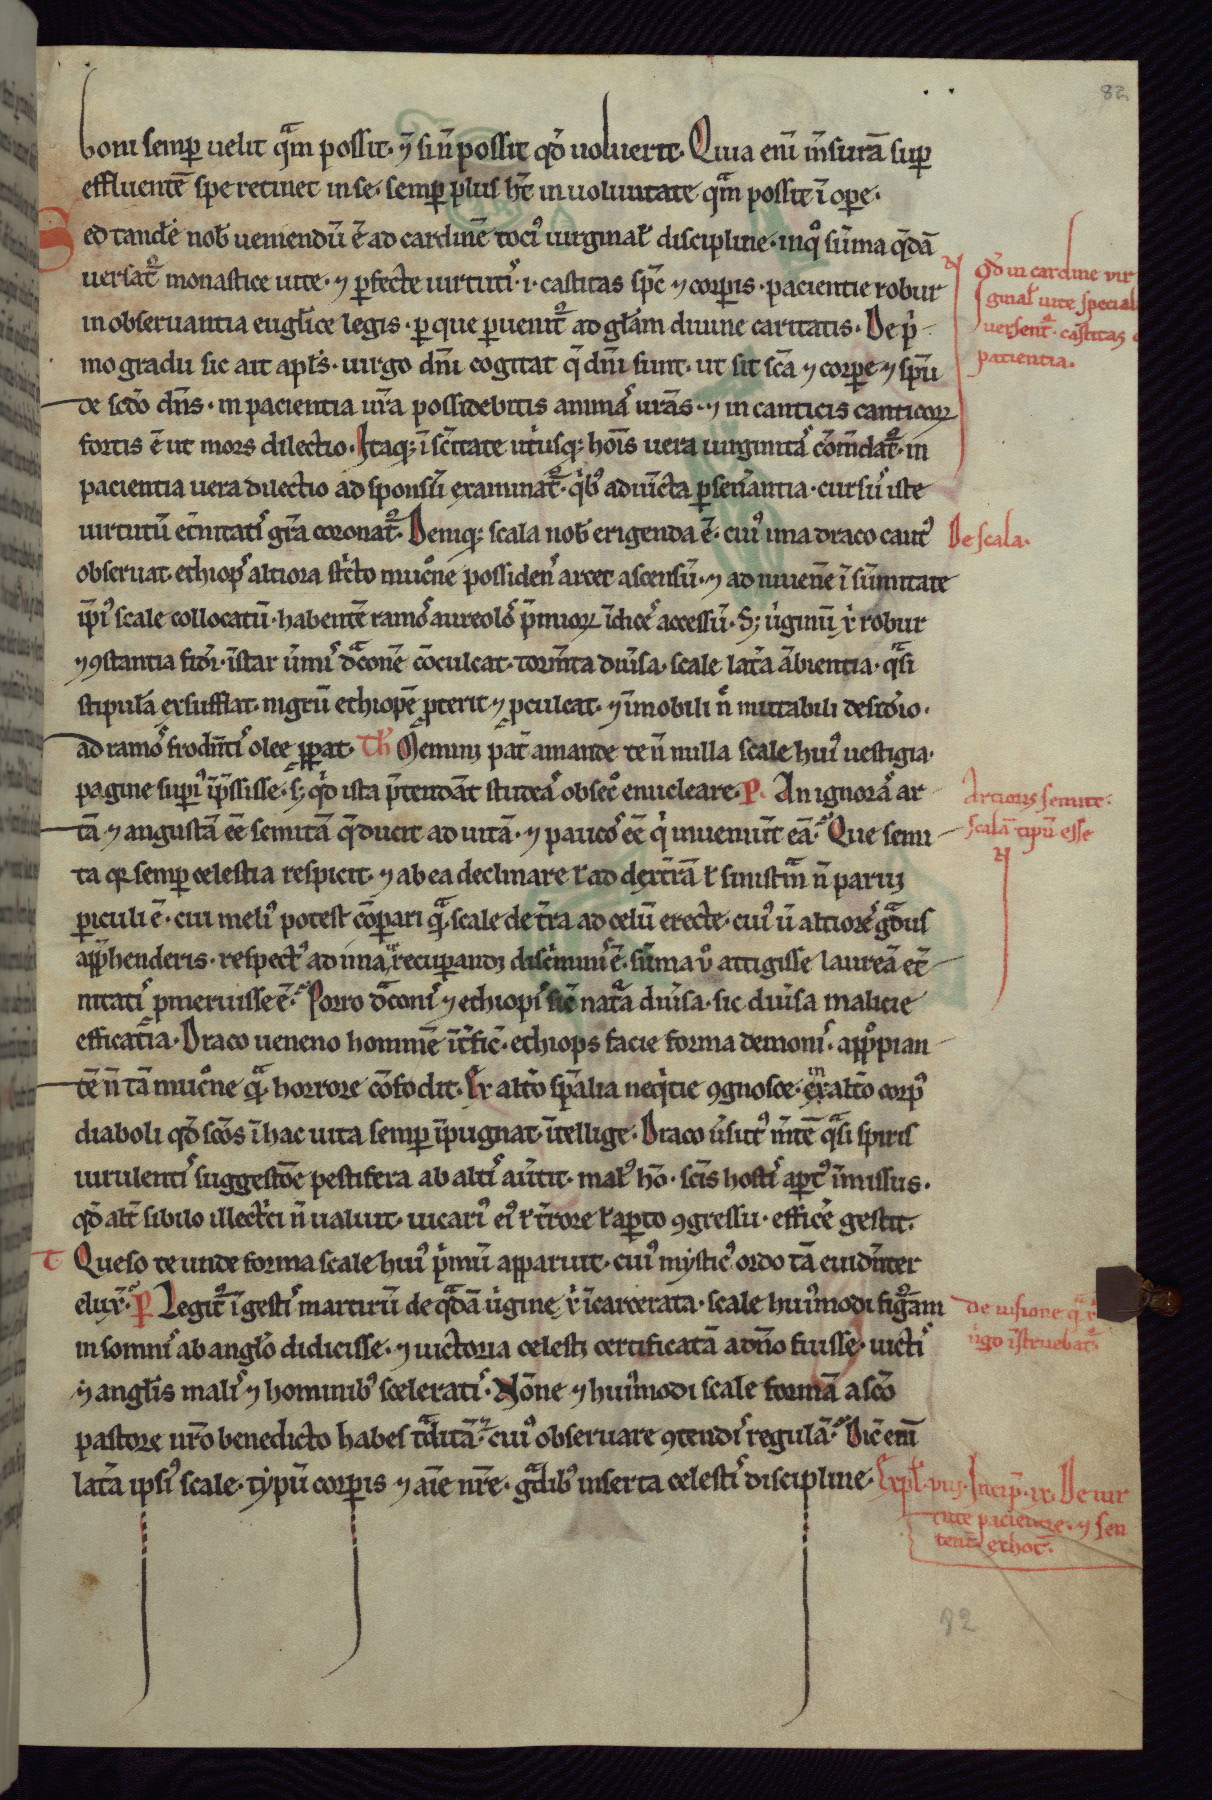 82
boni semp̄ uelit q̄m possit· ⁊ si n̄ possit qd̄ uoluerit· Quia eni͂ m̄surā sup
effluentē spe retinet in se· semp̄ plus ht̄ in uoluntate q̄m possit ī oṗe·
Sed tandē nob̄ ueniendū ē ad cardinē toci᷒ uirginal̄ discipline· in q̊ sūma q̄dā
uersat᷒ monastice uite· ⁊ ꝑfecte uirtuti᷒· i· castitas spc̄ ⁊ corꝑis· pacientie robur
in obseruantia eugl̄ice legis· ꝑ que ꝑuenit᷒ ad gl̄am diuine caritatis· De p̓
mo gradu sic ait apl̄s· uirgo dn̄i cogitat q̄ dn̄i sunt· ut sit sc̄a ⁊ corꝑe ⁊ spū
de sc̄do dn̄s· in pacientia ur̄a possidebitis animā urās· ⁊ in canticis canticoꝝ
fortis ē ut mors dilectio· Itaq; ī sc̄itate ut̓usq; hoīs uera uirginitas cōmdat᷒· in
pacientia uera dilectio ad sponsū examinat᷒· q̓b᷒ adiūcta ꝑseūantia· cursū iste
uirtutū et̄nitati᷒ gr̄a coronat᷒· Deniq; scala nob̄ erigenda ē· cui᷒ ima draco caut᷒
obseruat· ethiops altiora st̓cto muc̊ne possidens arcet ascensū· ⁊ ad iuuenē ī sūmitate
ip̄i᷒ scale collocatū· habentē ramos aureolos p̄mioꝝ īdices accessū· S; ūginū xp̓i robur
⁊ ꝯstantia fidei· īstar ūmis dͣconē cōculcat· torm̄ta diūsa· scale lat̄a ābientia· qͣsi
stipulā exsufflat· nigrū ethiopē p̄terit ⁊ ꝓculcat· ⁊ īmobili n̄ mutabili desid̓io·
ad ramos frōdn̄tis olee ꝓꝑat· Th̄ Memini pat̄ amande te n̄ nulla scale hui᷒ uestigia·
pagine supi᷒ īp̄ssisse· s; qd̓ ista p̄tendāt studeas obsec̊ enucleare· P· An ignoras ar
tā ⁊ angustā eē semitā q̄ ducit ad uitā· ⁊ paucos eē q̓ inueniūt eā· Que semi
ta qꝛ semp̄ celestia respicit· ⁊ ab ea declinare l̄ ad dext̄rā l̄ sinistrͣm n̄ parui
ꝑiculi ē· cui meli᷒ potest cōpari qͣ scale de t̄ra ad celū erecte· cui᷒ ū altiores gͣdus
app̄henderis· respect᷒ ad ima ⁊ recuꝑandi disc̓imins ē· sūma u̾ attigisse laureā et̄
nitatis ꝓmeruisse ē· Porro dͣconis ⁊ ethiopis sic̄ natͣa diūsa· sic diūsa malicie
efficatͣia· Draco ueneno hominē īt̓fic̄· ethiops facie forma demonis· aꝓp̊pian
tē n̄ tā muc̊ne qͣ horrore cōfodit· Ex alto sp̄alia neq̓tie ꝯgnosce· ex alto in corp᷒
diaboli qd̄ sc̄os ī hac uita semp̄ īpugnat· ītellige· Draco ūsut᷒ m̄te qͣsi spiris
uirulentis suggestōe pestifera ab altis au̓tit· mal᷒ hō· scīs hostis aꝑt᷒ īmissus·
qd̄ alt̄ sibilo illectr̄ci n̄ ualuit· uicari᷒ ei᷒ l̄ t̓rore l̄ aꝑto ꝯgressu· efficē gestit·
T Queso te unde forma scale hui᷒ p̓mū apparuit· cui᷒ mystic᷒ ordo tā euidn̄ter
eluxit· P Legit᷒ ī gestis martirū de qͣdā ūgine xp̓i īcarcerata· scale hui᷒modi figͣam
in somnis ab angl̄o didicisse· ⁊ uictoria celesti certificatā a dn̄o fuisse· uictis
⁊ angl̄is malis ⁊ hominib᷒ sceleratis· Nōne ⁊ hui᷒modi scale formā a sc̄o
pastore nr̄o benedicto habes tͣditā· cui᷒ obseruare ꝯtendis regulā· Dic̄ eni͂
lat̄a ipsi᷒ scale· typū corꝑis ⁊ aīe nr̄e· gͣdib᷒ inserta celestis discipline· Expl̄· viij· Incip̄· ix· De uir
tute paciencie· ⁊ sen
tent· ethoc·
Qd̄ in cardine vir
ginal̄ uite special
uersent᷒· castitas
patientia·
De scala·
Artioris semite·
scalā tipū esse
de uisione
ūgo īstruebat᷒
82